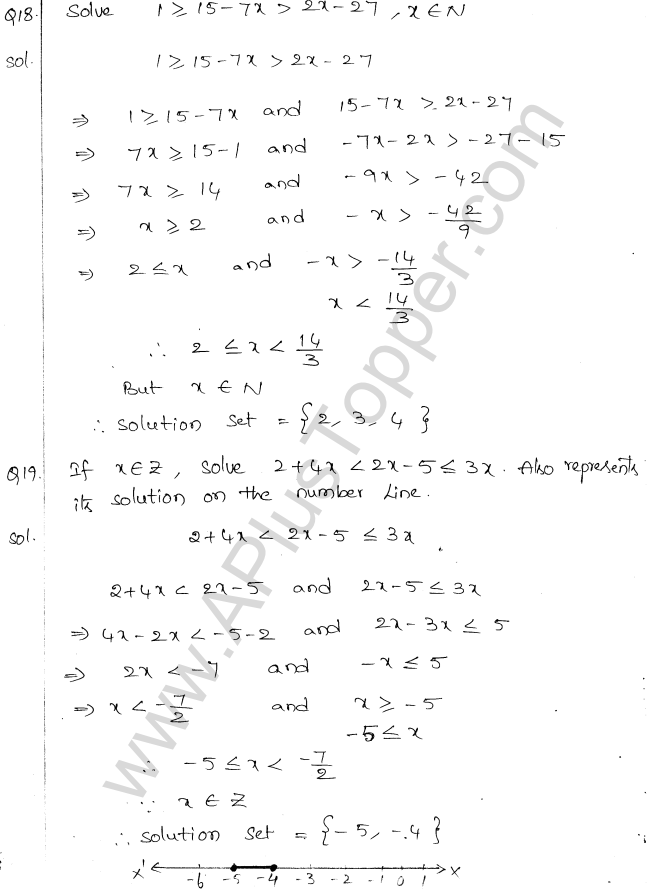 Q18. Solve 1 ≥ 15-7x > 2x-27, x ∈ N
Sol. 1 ≥ 15-7x > 2x-27
⇒ 1 ≥ 15-7x and 15-7x > 2x-27
⇒ 7x ≥ 15-1 and -7x-2x > -27-15
⇒ 7x ≥ 14 and -9x > -42
⇒ x ≥ 2 and -x > -42/9
⇒ 2 ≤ x and -x > -14/3
x < 14/3
∴ 2 ≤ x < 14/3
But x ∈ N
∴ solution set = {2, 3, 4}
Q19. If x∈Z, solve 2+4x < 2x-5 ≤ 3x. Also represents
its solution on the number line.
Sol. 2+4x < 2x-5 ≤ 3x
2+4x < 2x-5 and 2x-5 ≤ 3x
⇒ 4x-2x < -5-2 and 2x-3x ≤ 5
⇒ 2x < -7 and -x ≤ 5
⇒ x < -7/2 and x ≥ -5
-5 ≤ x
∴ -5 ≤ x < -7/2
∵ x ∈ Z
∴ solution set = {-5, -4}
x' -6 -5 -4 -3 -2 -1 0 1 x
www.APlusTopper.com